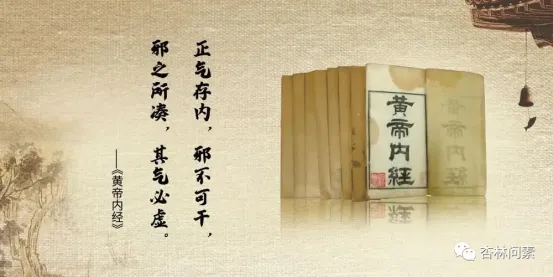 正气存内，邪不可干，
邪之所凑，其气必虚。
——《黄帝内经》
黄帝内经
黄帝内经
杏林问素